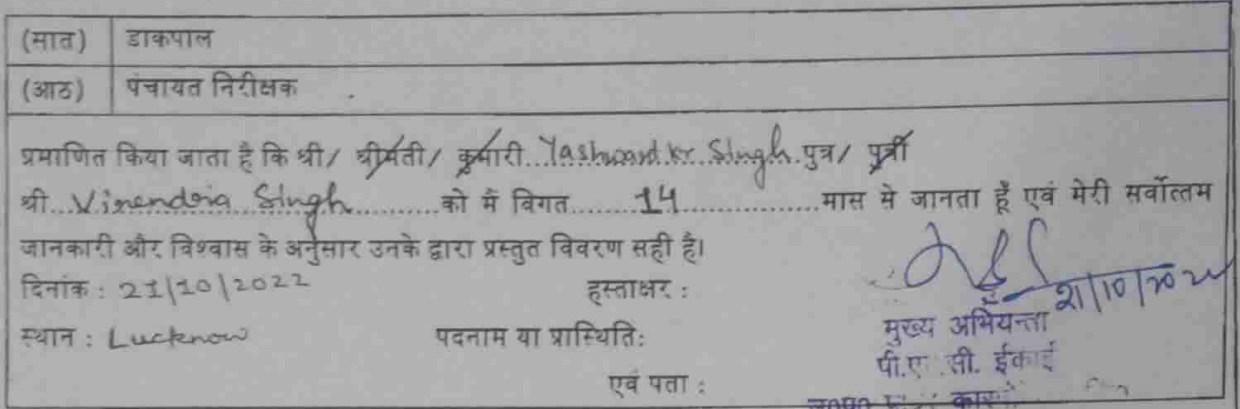 (सात) डाकपाल
(आठ) पंचायत निरीक्षक
प्रमाणित किया जाता है कि श्री/ श्रीमती/ कुमारी...Yashward.kr. Singh. पुत्र/ पुत्री
श्री...Virendra Singh............को मैं विगत.......14.................मास से जानता हूँ एवं मेरी सर्वोत्तम
जानकारी और विश्वास के अनुसार उनके द्वारा प्रस्तुत विवरण सही है।
दिनांक : 21/10/2022 हस्ताक्षर : 21/10/2022
स्थान : Lucknow पदनाम या प्रास्थिति: मुख्य अभियन्ता
पी.ए. सी. ईकाई
एवं पता :